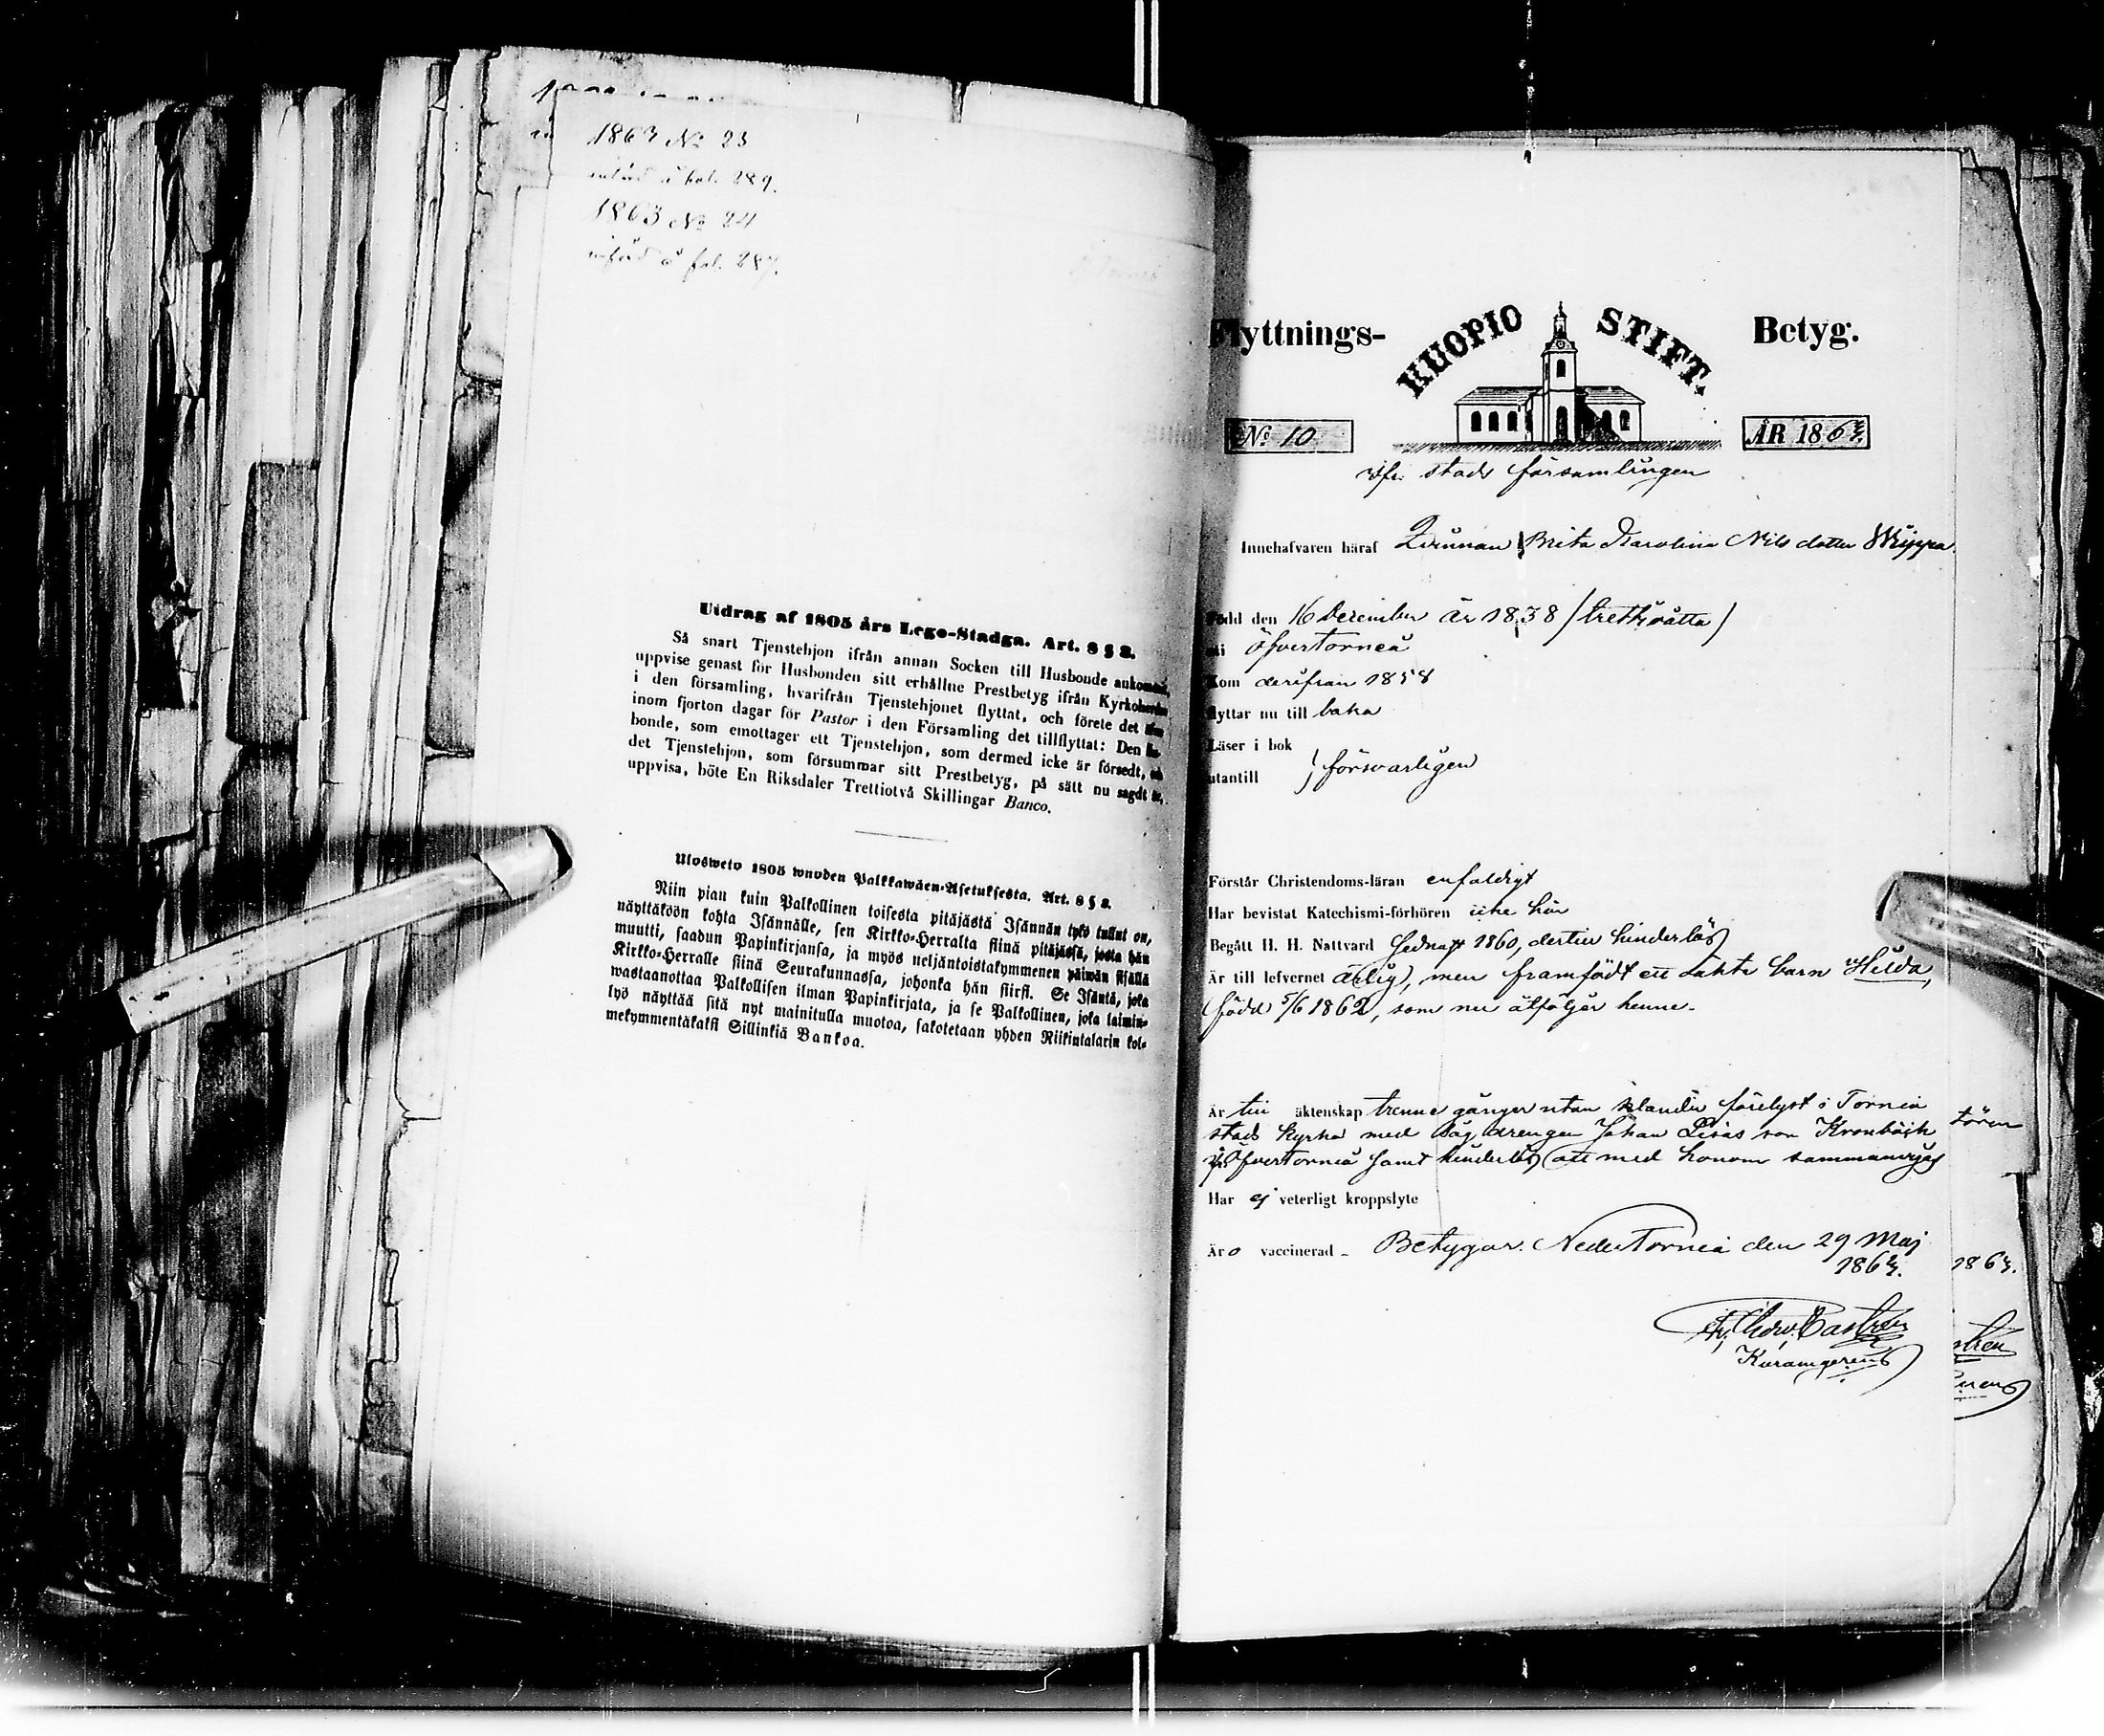 1863 No 23
införd å fol. 289.
1863 No 24
införd å fol. 287.
Utdrag af 1805 års Lego-Stadga. Art. 8 § 2.
Så snart Tjenstehjon ifrån annan Socken till Husbonde ankommit,
uppvise genast för Husbonden sitt erhållne Prestbetyg ifrån Kyrkoherden
i den församling, hvarifrån Tjenstehjonet flyttat, och förete det
inom fjorton dagar för Pastor i den Församling det tillflyttat: Den
bonde, som emottager ett Tjenstehjon, som dermed icke är försedt,
det Tjenstehjon, som försummar sitt Prestbetyg, på sätt nu sagdt är,
uppvisa, böte En Riksdaler Trettiotvå Skillingar Banco.
Ulosweto 1805 wuoden Palkkawäen-Asetuksesta. Art. 8 § 2.
Niin pian kuin Palkollinen toisesta pitäjästä Isännän tykö tullut on,
näyttäköön kohta Isännälle, sen Kirkko-Herralta siinä pitäjässä, josta hän
muutti, saadun Papinkirjansa, ja myös neljäntoistakymmenen päiwän sisällä
Kirkko-Herralle siinä Seurakunnassa, johonka hän siirsi. Se Isäntä, joka
wastaanottaa Palkollisen ilman Papinkirjata, ja se Palkollinen, joka laimin-
lyö näyttää sitä nyt mainitulla muotoa, sakotetaan yhden Riikintalarin kol-
mekymmentäkaksi Sillinkiä Bankoa.
Flyttnings- KUOPIO STIFT. Betyg.
No 10 ÅR 1863.
stads församlingen
Innehafvaren häraf Qvinnan Brita Karolina Nils dotter
Född den 16 December år 1838 /trettiåtta/
i Öfvertorneå
Kom derifrån 1858
flyttar nu till baka
Läser i bok
utantill } försvarligen
Förstår Christendoms-läran enfaldigt
Har bevistat Katechismi-förhören icke här
Begått H. H. Nattvard sednast 1860, dertill hinderlös
Är till lefvernet ärlig, men framfödt ett oäkta barn Hilda,
född 5/6 1862, som nu åtföljer henne.
Är till äktenskap trenne gånger utan klander förelyst i Torneå
stads kyrka med drengen Johan son Kronbäck
Öfvertorneå samt hinderlös att med honom sammanvigas
tören
Har ej veterligt kroppslyte
Är o vaccinerad - Betygar. Neder Torneå den 29 Maj
1863.
1863.
Castrén